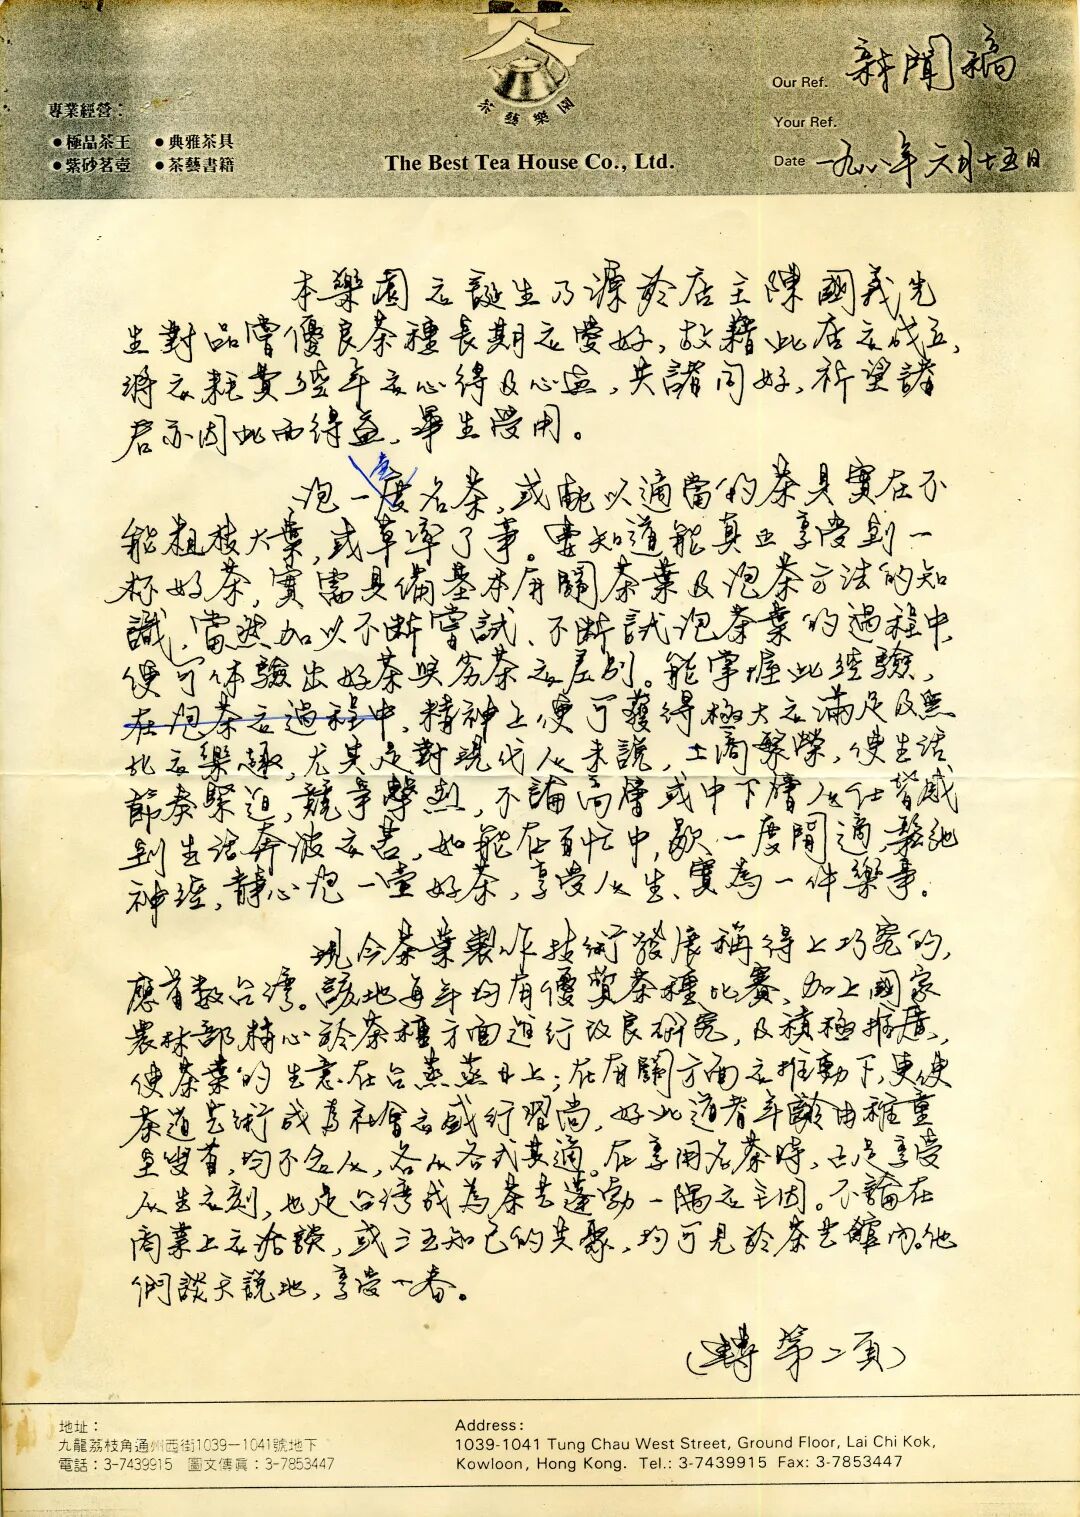 茶藝樂園
專業經營：
●極品茶王 ●典雅茶具
●紫砂茗壺 ●茶藝書籍
The Best Tea House Co., Ltd.
Our Ref. 新聞稿
Your Ref.
Date 一九八八年六月十五日
本樂園之誕生乃源於店主陳國義先
生對品嘗優良茶種長期之愛好，故藉此店之成立，
將之耗費經年之心得及心血，共諸同好，祈望諸
君亦因此而得益，畢生受用。
壺
泡一度名茶，或配以適當的茶具實在不
能粗枝大葉，或草率了事。要知道能真正享受到一
杯好茶，實需具備基本有關茶葉及泡茶方法的知
識，當然加以不斷嘗試、不斷試泡茶葉的過程中，
便可体驗出好茶與劣茶之差別。能掌握此經驗，
在泡茶之過程中，精神上便可獲得極大之滿足及無
比之樂趣，尤其是對現代人來說，工商繁榮，使生活
節奏緊迫，競爭擊烈，不論高層或中下層人仕皆感
到生活奔波之苦，如能在百忙中，歇一度閒適，鬆弛
神經，靜心泡一壺好茶，享受人生、實為一件樂事。
現今茶業製作技術發展稱得上巧究的，
應首數台灣。該地每年均有優質茶種比賽，加上國家
農林部精心於茶種方面進行改良研究，及積極推廣，
使茶葉的生意在台蒸蒸日上；在有關方面之推動下，更使
茶道芸術成為社會之盛行習尚，好此道者年齡由稚童
至叟耆，均不乏人，各從各式其適。在享用名茶時，已是享受
人生之刻，也是台灣成為茶芸蓬勃一隅之主因。不論在
商業上之洽談，或三五知己的共聚，均可見於茶芸館內。他
們談天說地，享受一番。
（轉第二頁）
地址：
九龍荔枝角通州西街1039－1041號地下
電話：3-7439915 圖文傳真：3-7853447
Address:
1039-1041 Tung Chau West Street, Ground Floor, Lai Chi Kok,
Kowloon, Hong Kong. Tel.: 3-7439915 Fax: 3-7853447